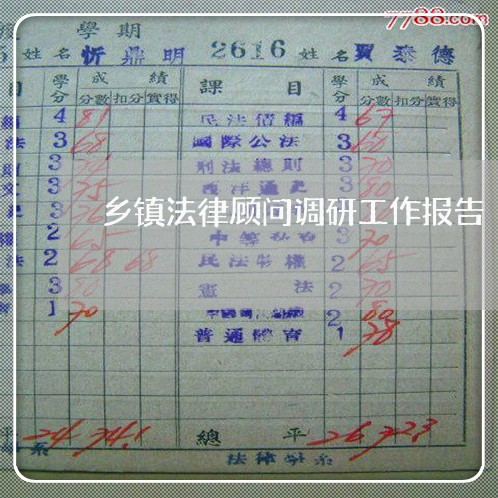 7788.com
學期
姓名 忻鼎明 2616 姓名 賈泰德
目 學分 成績 課目 學分 成績
分數 扣分 實得 分數 扣分 實得
4 81 民法債編 4 67
法 3 68 國際公法 3 60
3 刑法總則 3 70
3 75 西洋通史 3 80
乡镇法律顾问调研工作报告
2 65 3 70
法 2 68 68 民法物權 2 65
3 80 憲法 2 70
1 70 2 80
普通體育 1 78
平 24 74.1 總平 26 72.3
系 法律學系